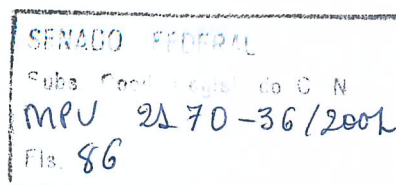 SENADO FEDERAL
Subs. Coord. Legisl. do C. N.
MPV 2170-36/2001
Fls. 86